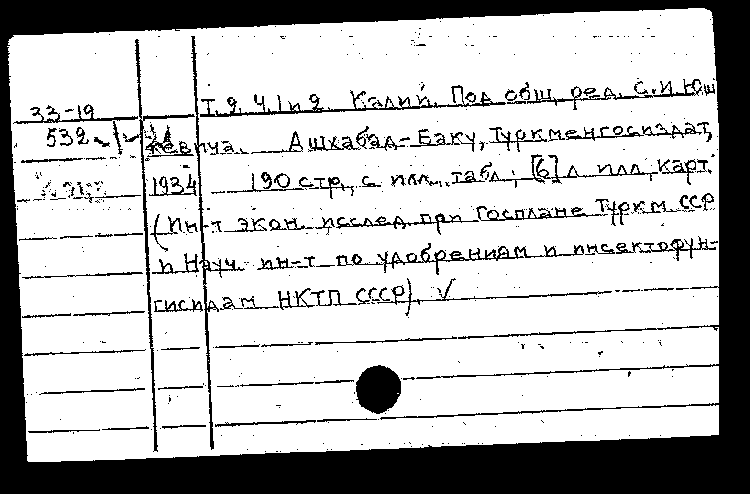 33-19 Т. 2. Ч. 1 и 2. Калий. Под общ. ред. С. И. Юш
532 кевича. Ашхабад-Баку, Туркменгосиздат,
1934 190 стр., с илл., табл.; [6] л илл, карт.
(Ин-т экон. исслед. при Госплане Туркм ССР
и Науч. ин-т по удобрениям и инсектофун-
гисидам НКТП СССР). √